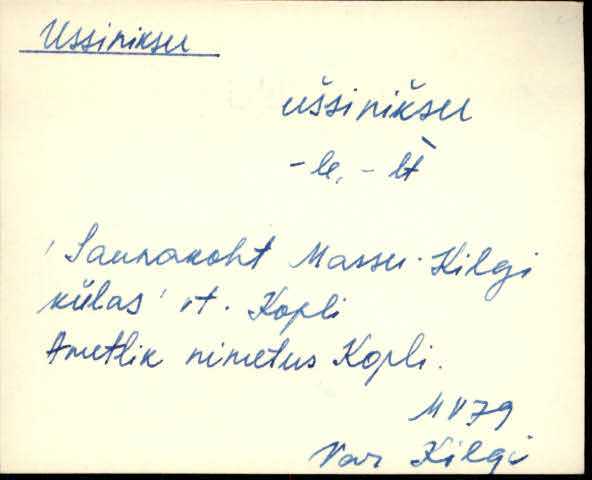 Ussiniksu
uššinikšu
-le, -lt̀
'Saunakoht Massu-Kilgi
külas' vt. Kopli
Ametlik nimetus Kopli.
MV79
Var Kilgi